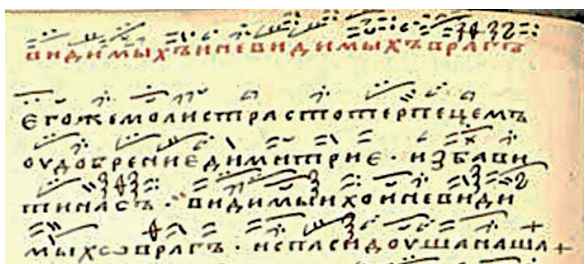 видимыхъиневидимыхъврагъ
егожемолистрастотерпецемъ
оудобрениедимитрие · избави
тинасъ · видимыихоиневиди
мыхсѡврагъ · испасидоушанаша+